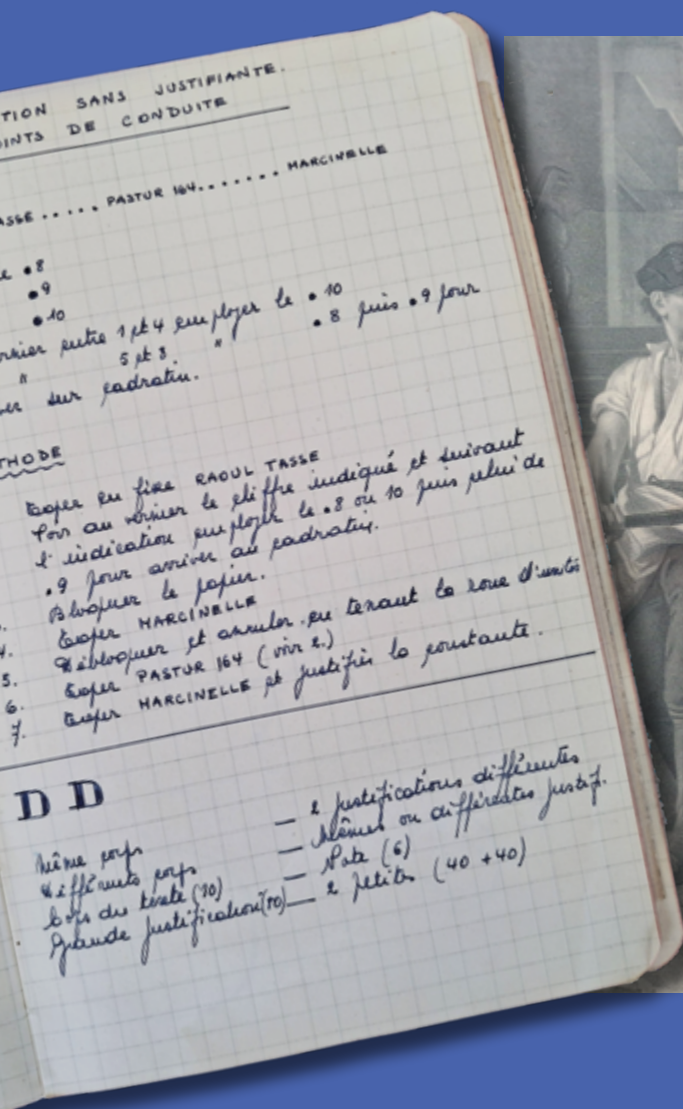 TION SANS JUSTIFIANTE.
OINTS DE CONDUITE
ASSE ..... PASTUR 164 ....... MARCINELLE
.8
.9
.10
entre 1 et 4 employer le .10
" 5 et 8. " .8 puis .9 pour
sur cadratin.
THODE
Taper en fixe RAOUL TASSE
Voir au vernier le chiffre indiqué et suivant
l'indication employer le .8 ou 10 puis celui de
.9 pour arriver au cadratin.
Bloquer le papier.
4. Taper MARCINELLE
5. Débloquer et annuler en tenant la roue d'unités
6. Taper PASTUR 164 (voir 2.)
7. Taper MARCINELLE et justifier la constante.
D D
Même corps — 2 justifications différentes
Différents corps — Mêmes ou différentes justif.
Corps du texte (10) — Note (6)
Grande justification (10) — 2 petites (40 + 40)